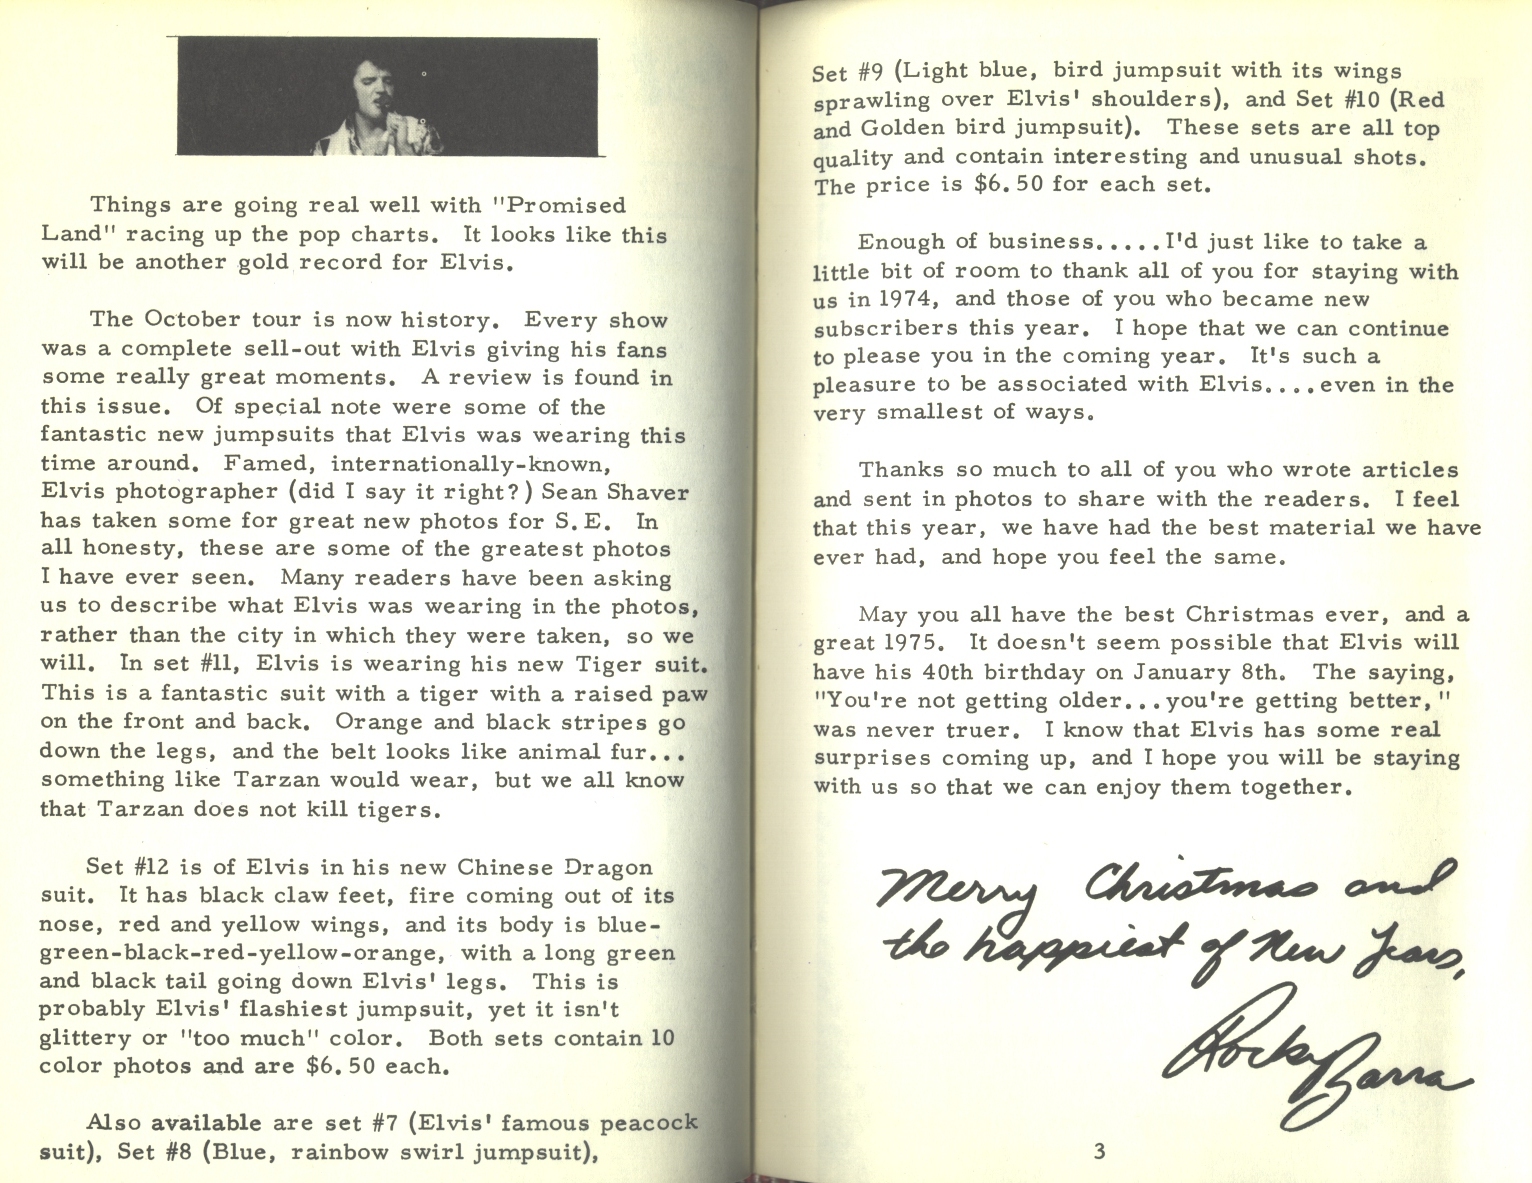 Things are going real well with "Promised
Land" racing up the pop charts. It looks like this
will be another gold record for Elvis.
The October tour is now history. Every show
was a complete sell-out with Elvis giving his fans
some really great moments. A review is found in
this issue. Of special note were some of the
fantastic new jumpsuits that Elvis was wearing this
time around. Famed, internationally-known,
Elvis photographer (did I say it right?) Sean Shaver
has taken some for great new photos for S.E. In
all honesty, these are some of the greatest photos
I have ever seen. Many readers have been asking
us to describe what Elvis was wearing in the photos,
rather than the city in which they were taken, so we
will. In set #11, Elvis is wearing his new Tiger suit.
This is a fantastic suit with a tiger with a raised paw
on the front and back. Orange and black stripes go
down the legs, and the belt looks like animal fur...
something like Tarzan would wear, but we all know
that Tarzan does not kill tigers.
Set #12 is of Elvis in his new Chinese Dragon
suit. It has black claw feet, fire coming out of its
nose, red and yellow wings, and its body is blue-
green-black-red-yellow-orange, with a long green
and black tail going down Elvis' legs. This is
probably Elvis' flashiest jumpsuit, yet it isn't
glittery or "too much" color. Both sets contain 10
color photos and are $6.50 each.
Also available are set #7 (Elvis' famous peacock
suit), Set #8 (Blue, rainbow swirl jumpsuit),
Set #9 (Light blue, bird jumpsuit with its wings
sprawling over Elvis' shoulders), and Set #10 (Red
and Golden bird jumpsuit). These sets are all top
quality and contain interesting and unusual shots.
The price is $6.50 for each set.
Enough of business.....I'd just like to take a
little bit of room to thank all of you for staying with
us in 1974, and those of you who became new
subscribers this year. I hope that we can continue
to please you in the coming year. It's such a
pleasure to be associated with Elvis....even in the
very smallest of ways.
Thanks so much to all of you who wrote articles
and sent in photos to share with the readers. I feel
that this year, we have had the best material we have
ever had, and hope you feel the same.
May you all have the best Christmas ever, and a
great 1975. It doesn't seem possible that Elvis will
have his 40th birthday on January 8th. The saying,
"You're not getting older...you're getting better,"
was never truer. I know that Elvis has some real
surprises coming up, and I hope you will be staying
with us so that we can enjoy them together.
Merry Christmas and
the happiest of New Years,
Rocky Barra
3